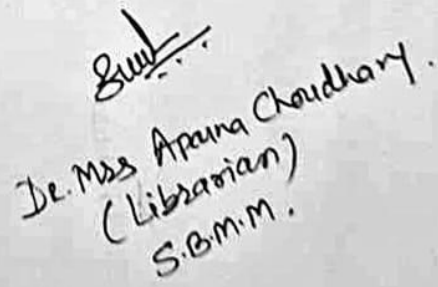 Dr. Mrs Aparna Choudhary.
(Librarian)
S.B.M.M.